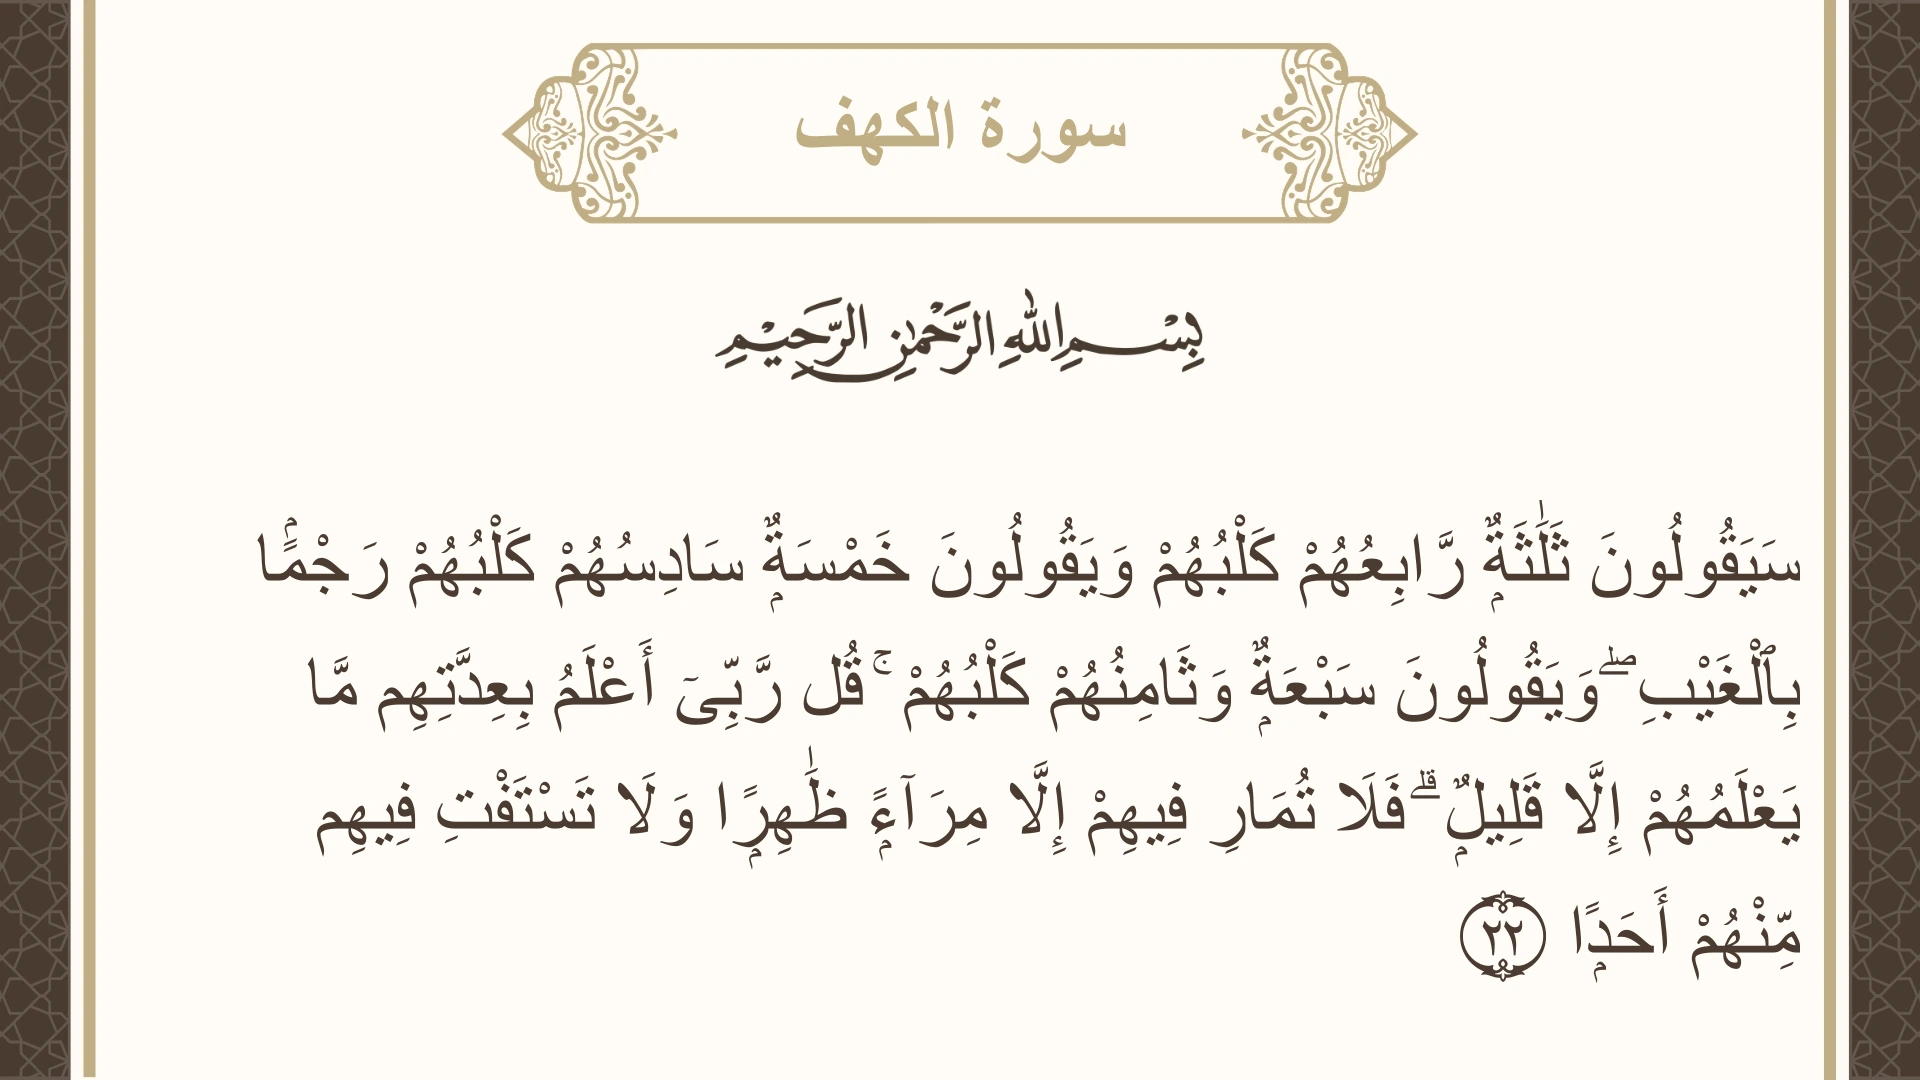 سورة الكهف
بِسْمِ اللهِ الرَّحْمٰنِ الرَّحِيْمِ
سَيَقُولُونَ ثَلَٰثَةٌۭ رَّابِعُهُمْ كَلْبُهُمْ وَيَقُولُونَ خَمْسَةٌۭ سَادِسُهُمْ كَلْبُهُمْ رَجْمًۢا
بِٱلْغَيْبِ ۖ وَيَقُولُونَ سَبْعَةٌۭ وَثَامِنُهُمْ كَلْبُهُمْ ۚ قُل رَّبِّىٓ أَعْلَمُ بِعِدَّتِهِم مَّا
يَعْلَمُهُمْ إِلَّا قَلِيلٌۭ ۗ فَلَا تُمَارِ فِيهِمْ إِلَّا مِرَآءًۭ ظَٰهِرًۭا وَلَا تَسْتَفْتِ فِيهِم
مِّنْهُمْ أَحَدًۭا ٢٢